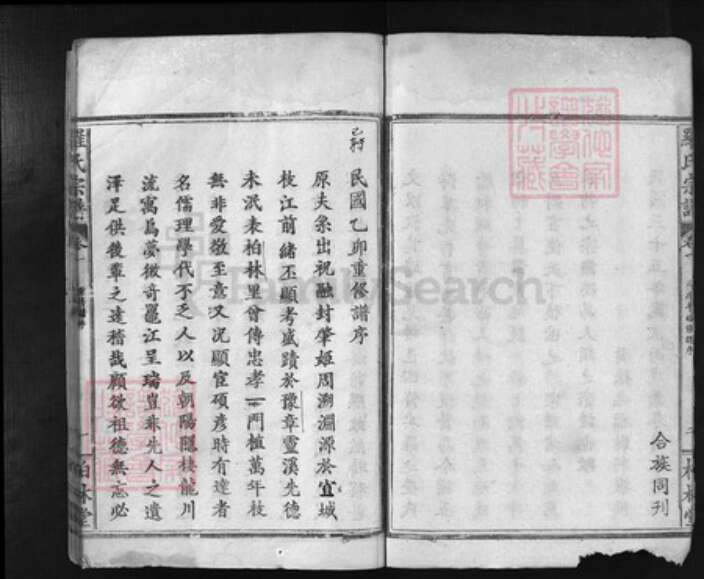 合族同刊
羅氏宗譜
卷一
柏林堂
民國乙卯重修譜序
原夫系出祝融封肇姬周溯淵源於宜城
枝江前緒丕顯考盛蹟於豫章靈溪先德
未泯表柏林里曾傳忠孝一門植萬年枝
無非愛敬至意又况顯宦碩彥時有達者
名儒理學代不乏人以及朝陽隱棲龍川
流寓為夢徵奇鼉江呈瑞豈非先人之遺
澤足供後輩之達稽哉顧欲祖德無忘必
羅氏宗譜
卷一
一
柏林堂
FamilySearch